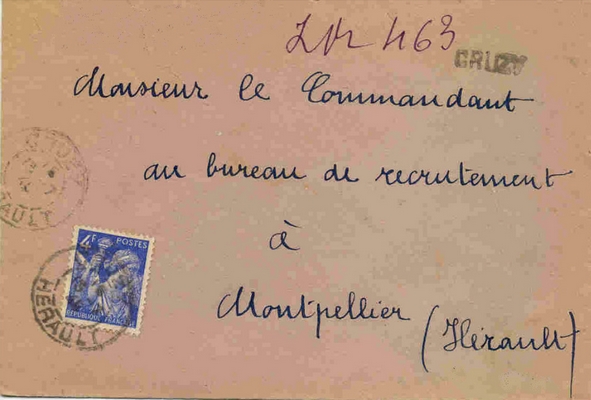 463
CRUZY
Monsieur le Commandant
au bureau de recrutement
à
Montpellier (Hérault)
HERAULT
4F POSTES
REPUBLIQUE FRANCAISE
HERAULT